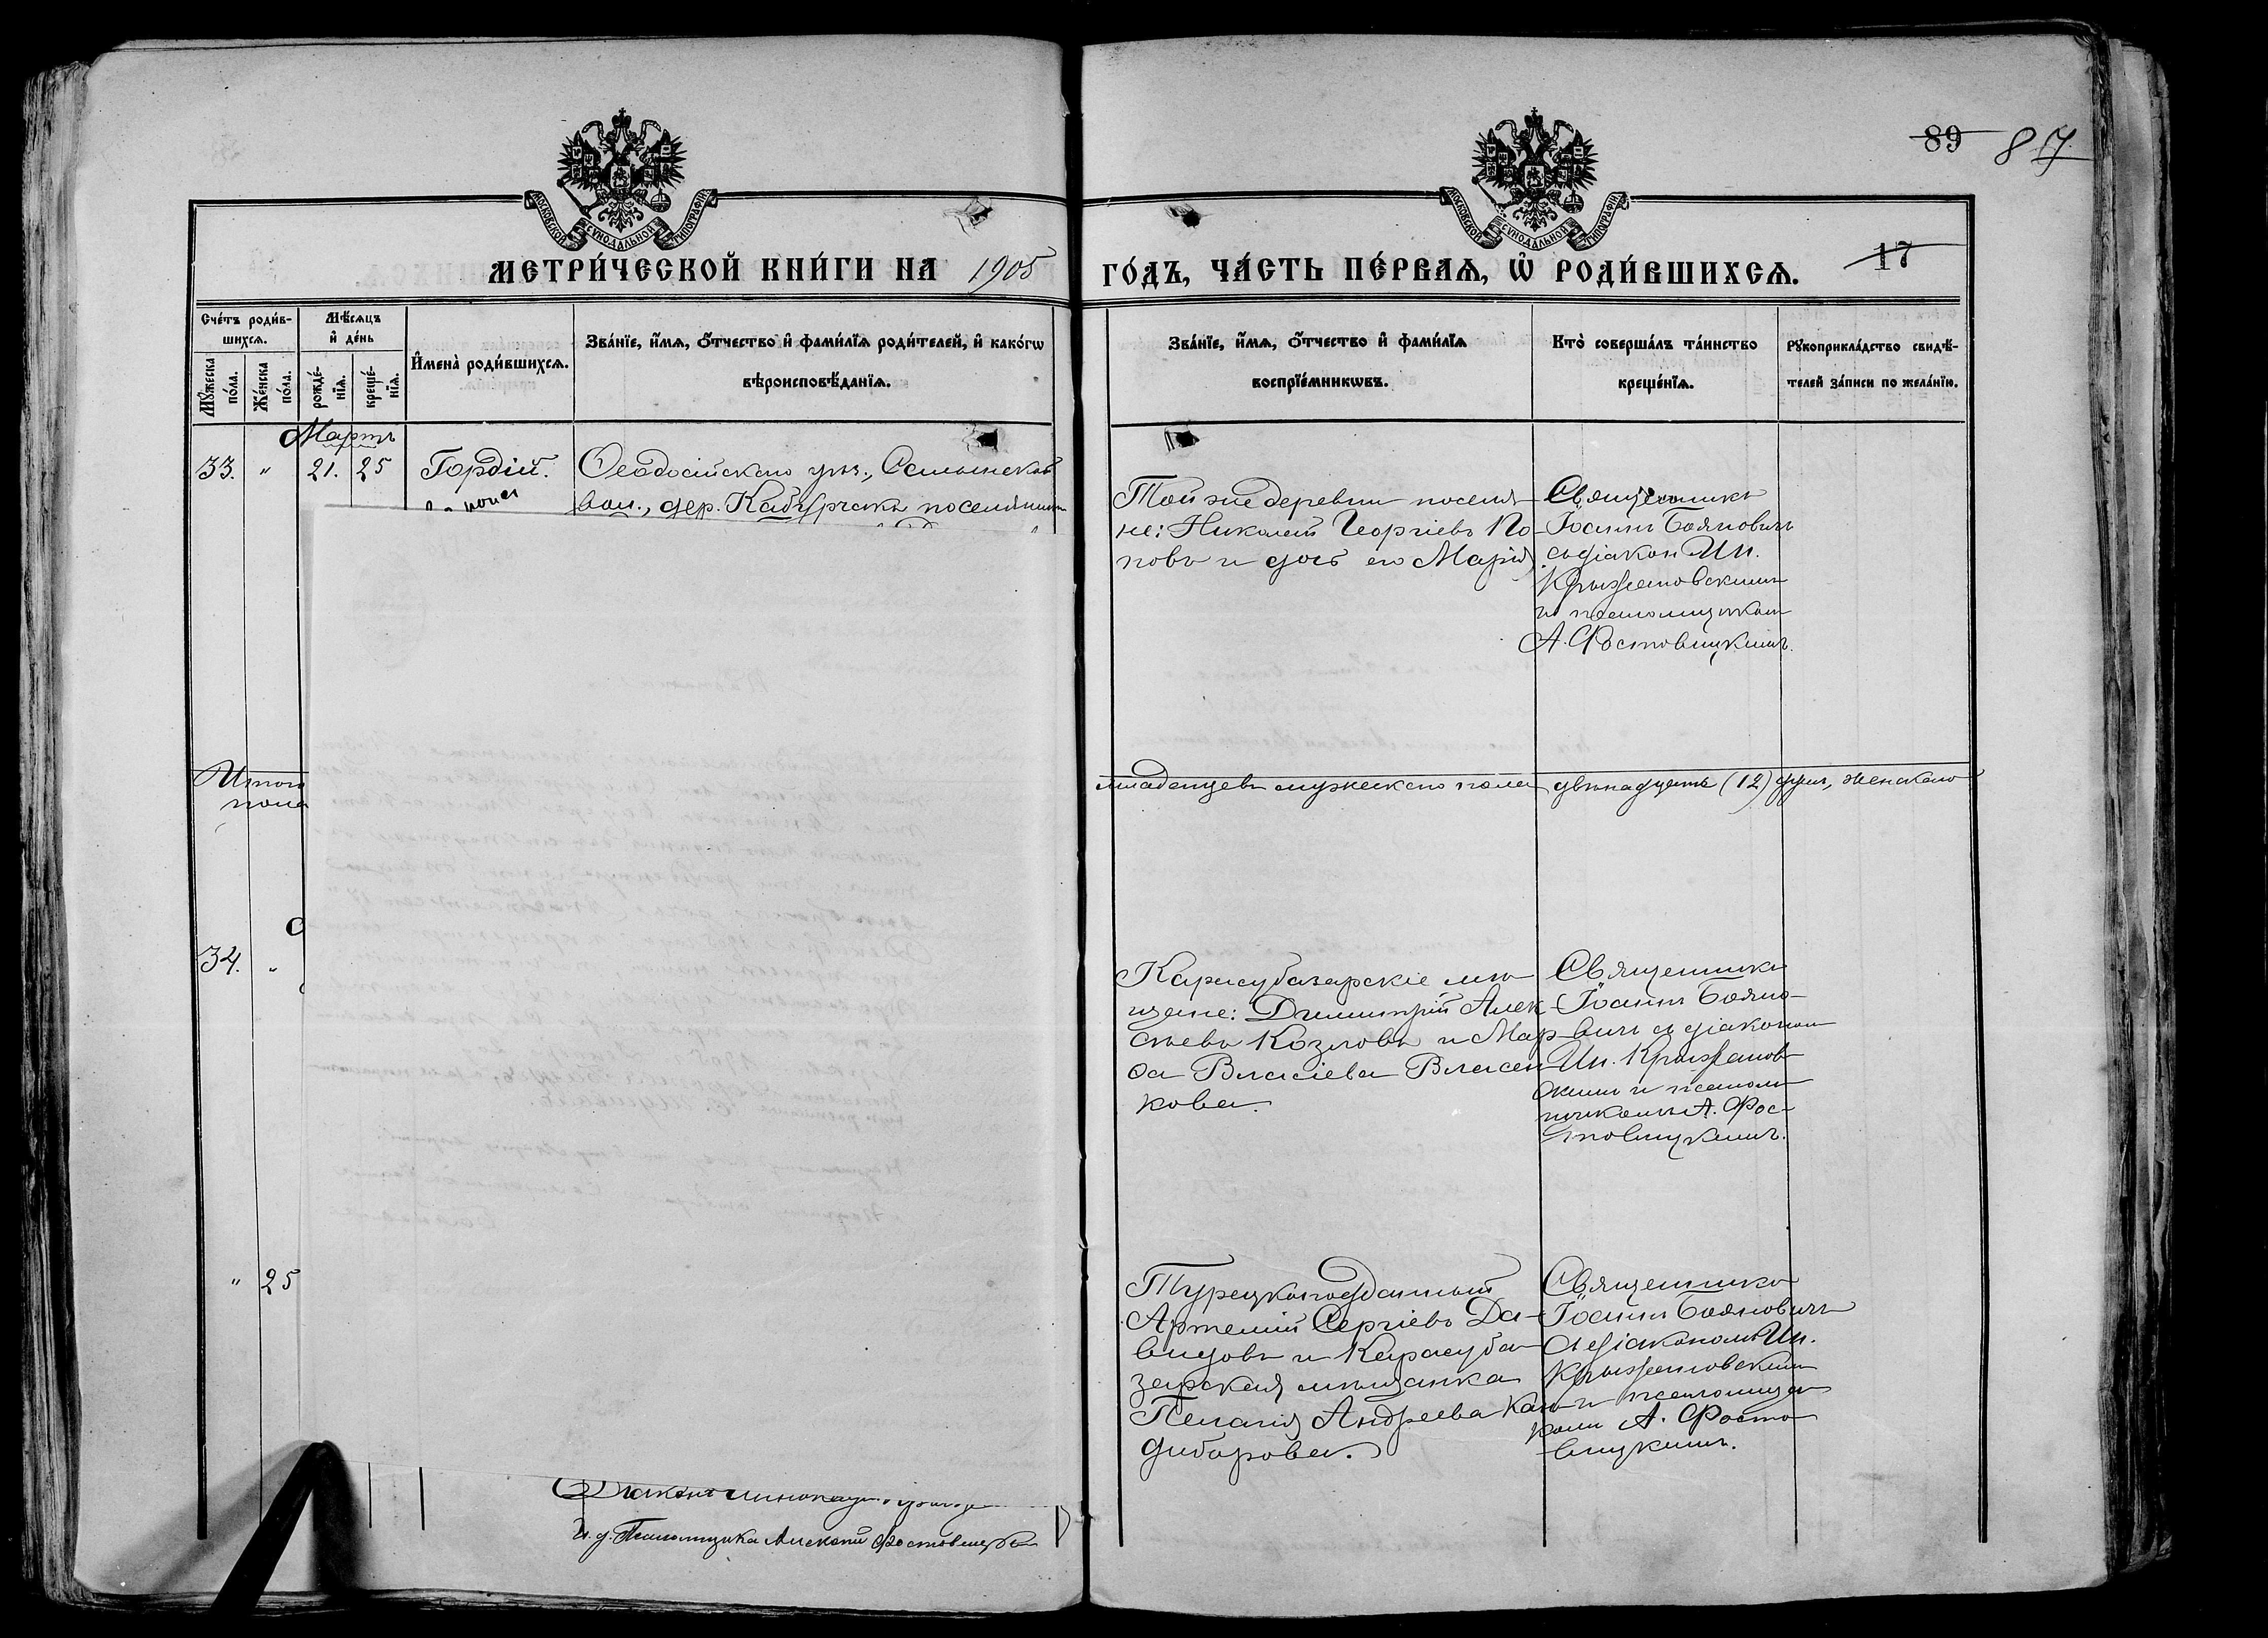 89 87
МОСКОВСКОЙ СУНОДАЛЬНОЙ ТИПОГРАФІИ
МОСКОВСКОЙ СУНОДАЛЬНОЙ ТИПОГРАФІИ
МЕТРИ́ЧЕСКОЙ КНИ́ГИ НА 1905
ГО́ДЪ, ЧА́СТЬ ПЕ́РВАЯ, Ѡ РОДИ́ВШИХСЯ. 17
Сче́тъ роди́в-
шихся.
Мꙋ́жеска по́ла.
Же́нска по́ла.
Мѣ́сяцъ
и҆ де́нь
рожде́-нїя.
креще́-нїя.
И҆мена̀ роди́вшихся.
Зва́нїе, и҆́мя, ѻ҆́тчество и҆ фами́лїя роди́телей, и҆ како́гѡ
вѣроисповѣ́данїя.
Зва́нїе, и҆́мя, ѻ҆́тчество и҆ фами́лїя
воспрїе́мникѡвъ.
Кто̀ соверша́лъ та́инство
креще́нїя.
Рꙋкоприкла́дство свидѣ́-
телей за́писи по жела́нїю.
Мартъ
33. " 21. 25 Гордій.
Ѳеодосійскаго уѣз.,
вол., дер. Кабурчакъ поселянинъ
Той же деревни поселя-
не: Николай Георгіевъ По-
повъ и дочь его Марія
Священникъ
Іоаннъ Бояновичъ
съ діакон Ин.
Крыжановскимъ
и псаломщикомъ
А. Фостовицкимъ.
Итого
пола
младенцевъ мужескаго пола двѣнадцать (12) душъ, женскаго
34. "
Карасубазарскіе мѣ-
щане: Димитрій Алек-
сѣевъ Козловъ и Мар-
ѳа Власіева Власен-
кова.
Священникъ
Іоаннъ Бояно-
вичъ съ діакономъ
Ин. Крыжанов-
скимъ и псалом-
щикомъ А. Фос-
товицкимъ.
" 25
Турецкоподданный
Артемій Сергіевъ Да-
видовъ и Карасуба-
зарская мѣщанка
Пелагія Андреева Кан-
дибарова.
Священникъ
Іоаннъ Бояновичъ
съ діакономъ Ин.
Крыжановскимъ
и псаломщи-
комъ А. Фосто-
вицкимъ.
Діаконъ
И. д. Псаломщика Алексѣй Фостовицкій